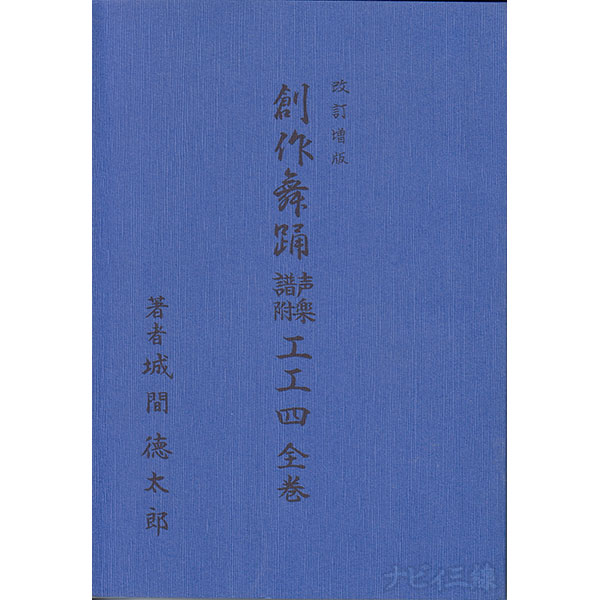 改訂増版
創作舞踊声楽譜附工工四全巻
著者城間徳太郎
ナビィ三線